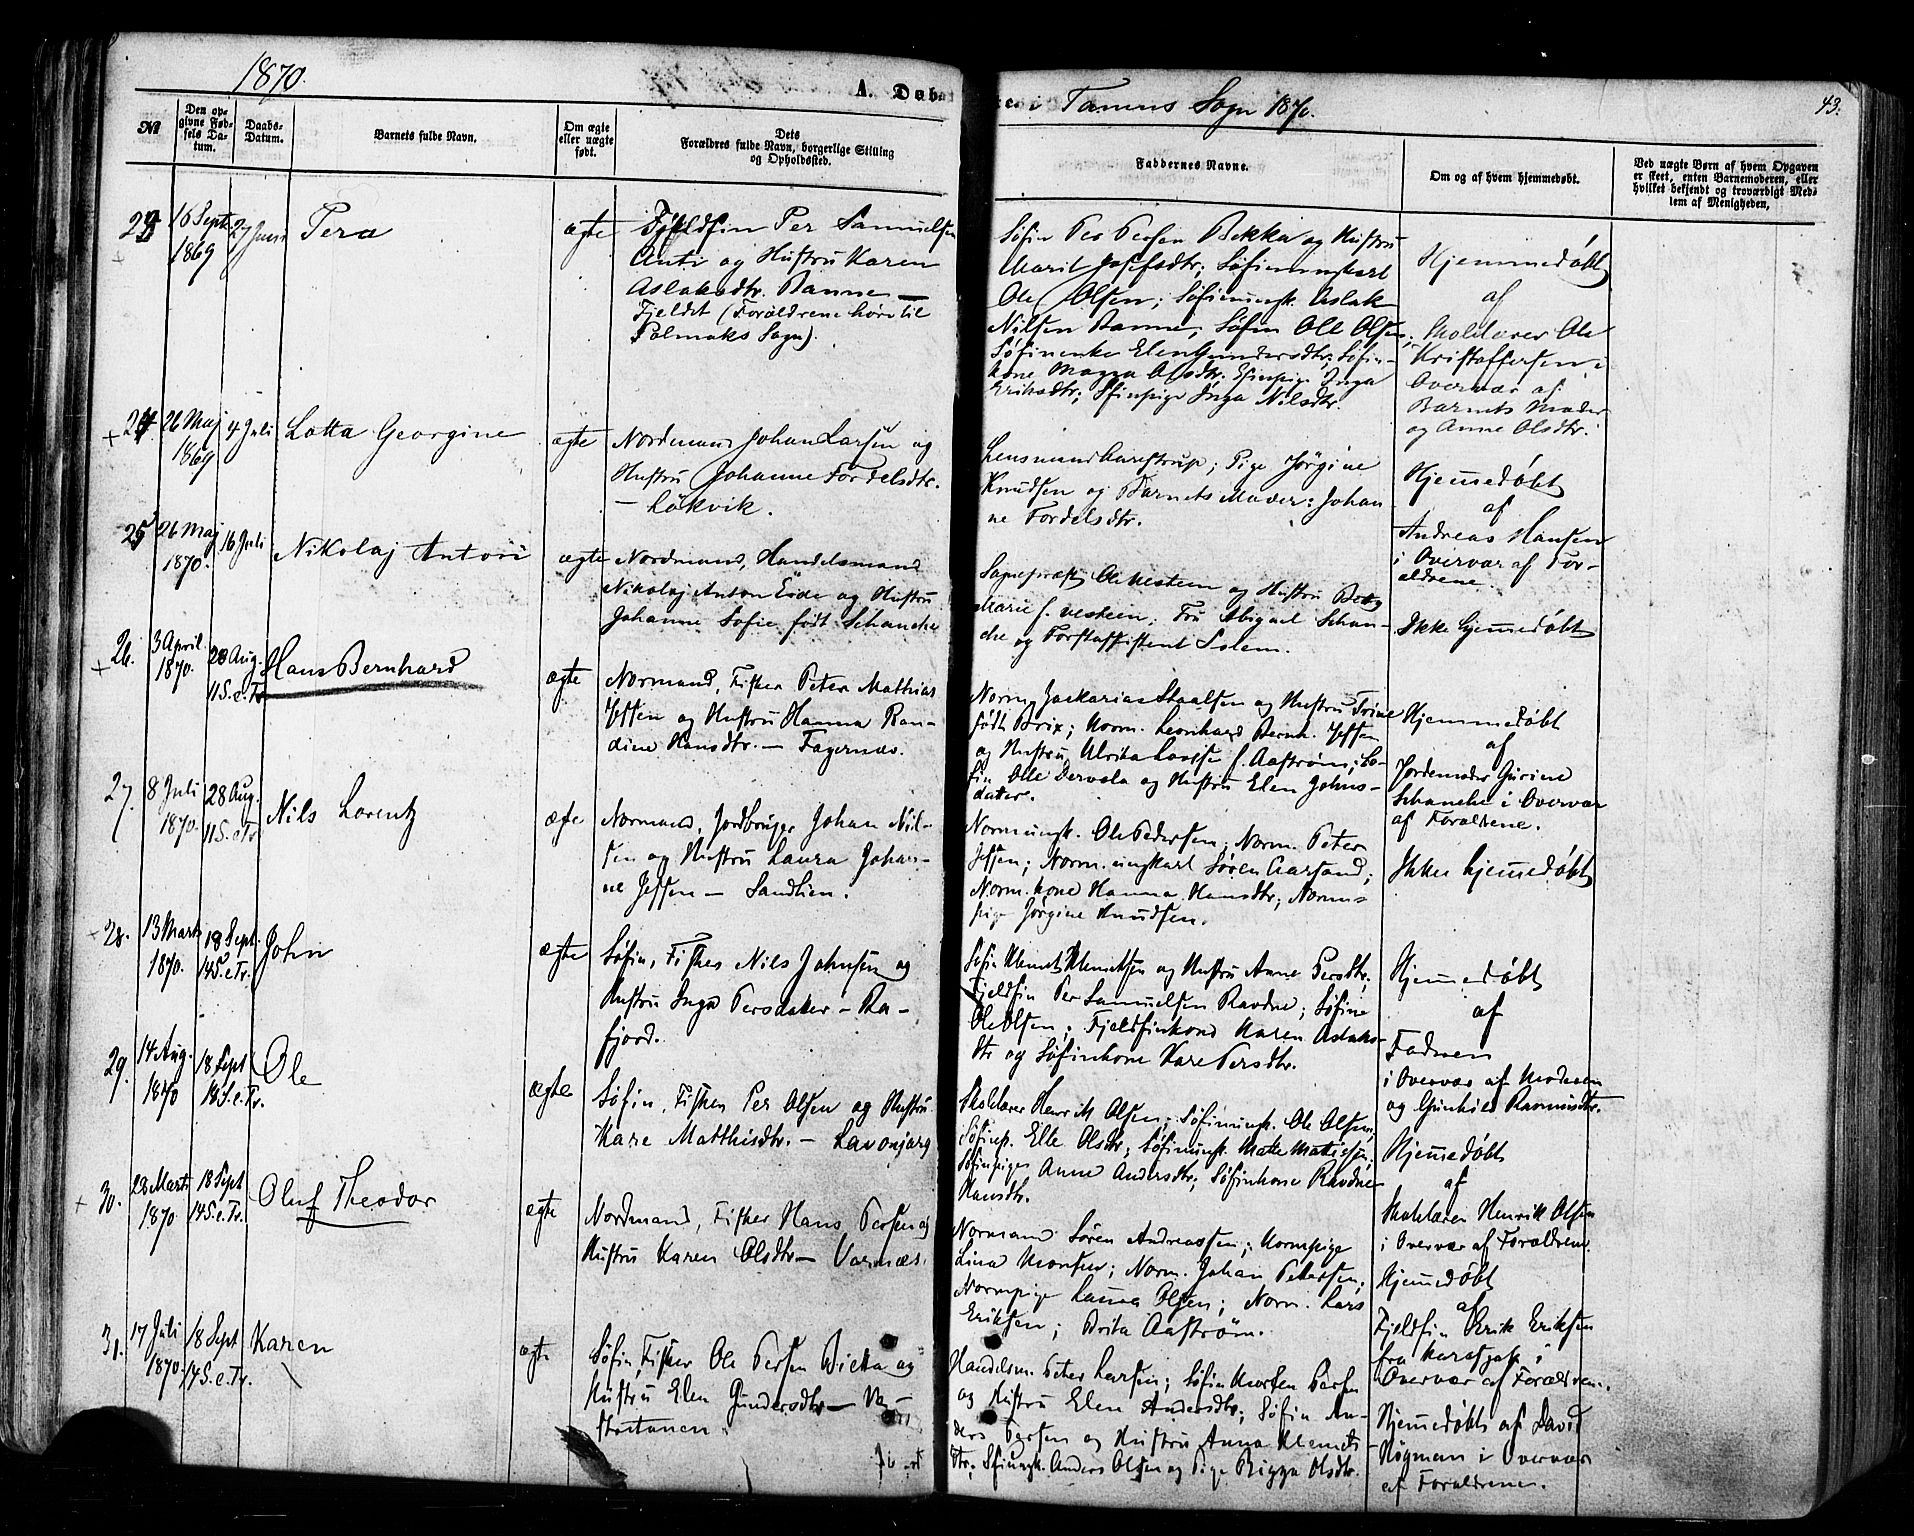 1870.
A. Døbte i Tanens Sogn 1870.
43.
№
Den opgivne Fødsels Datum.
Daabs-Datum.
Barnets fulde Navn.
Om ægte eller uægte født.
Dets Forældres fulde Navn, borgerlige Stilling og Opholdssted.
Faddernes Navne.
Om og af hvem hjemmedøbt.
Ved uægte Børn af hvem Opgaven er skeet, enten Barnemoderen, eller hvilket bekjendt og troværdigt Medlem af Menigheden,
23 16 Sept. 1869 27 Juni Pera ægte
Fjeldfin Per Samuelsen
Anti og Hustru Karen
Aslaksdtr. Banne —
Fjeldet (Forældrene høre til
Polmaks Sogn).
Søfin Per Persen Bekka og Hustru
Marit Josefsdtr; Søfinungkarl
Ole Olsen; Søfinungk. Aslak
Nilsen Banne; Søfin Ole Olsen;
Søfinenke Elen Gundersdtr; Søfin-
kone Magga Olsdtr. Sfinpige Inga
Eriksdtr; Sfinpige Inga Nilsdtr.
Hjemmedøbt
af
Skolelærer Ole
Kristoffersen i
Overvær af
Barnets Moder
og Anne Olsdtr.
+ 24. 26 Maj 1869 4 Juli Lotta Georgine ægte
Nordmand Johan Larsen og
Hustru Johanne Fordelsdtr.
— Løkvik.
Lensmand Karstrup; Pige Jørgine
Knudsen og Barnets Moder: Johan
ne Fordelsdtr.
Hjemmedøbt
af
Andreas Hansen
i Overvær af For-
ældrene.
25 26 Maj 1870. 16 Juli Nikolaj Anton ægte
Nordmand, Handelsmand
Nikolaj Anton Eide og Hustru
Johanne Sofie født Schanche
Sognepræst Ole Vesteen og Hustru
Marie f. Vesteen; Fru Abigael Schan-
che og Forstassistent Solem.
Ikke hjemmedøbt
+ 26. 3 April 1870. 28 Aug. 11 S. e. Tr. Hans Bernhard ægte
Normand, Fisker Peter Mathias
Jessen og Hustru Hanna Ran-
dine Hansdtr. — Fagernæs.
Norm. Zakarias Staalsen og Hustru Trine
født Brix; Norm. Leonhard Bernh. Jessen
og Hustru Ulrika Lovise f. Aastrøm; Sø-
fin Ole Dervola og Hustru Elen Johns-
datter.
Hjemmedøbt
af
Jordemoder Gurine
Schanche i Overvær
af Forældrene.
27. 8 Juli 1870. 28 Aug. 11 S. e. Tr. Nils Lorentz ægte
Normand, Jordbruger Johan Nil-
sen og Hustru Laura Johan-
ne Jessen — Sandlien.
Normungk. Ole Pedersen; Norm. Peter
Jessen; Norm. ungkarl Søren Aarsand;
Norm. kone Hanna Hansdtr; Norm-
pige Jørgine Knudsen.
Ikke hjemmedøbt
+ 28. 13 Marts 1870. 18 Sept. 14 S. e. Tr. John ægte
Søfin, Fisker Nils Johnsen og
Hustru Inga Persdatter — Ra-
fjord.
Søfin Klemet Klemetsen og Hustru Anne Persdtr;
Fjeldfin Per Samuelsen Ravdne; Søfin
Ole Olsen; Fjeldfinkone Karen Aslaks-
dtr og Søfinkone Kare Persdtr.
Hjemmedøbt
af
Fadren
i Overvær af Moderen
og Gunhild Rasmusdtr.
29. 14 Aug. 1870 18 Sept 14 S. e. Tr. Ole ægte
Søfin, Fisker Per Olsen og Hustru
Kare Matthisdtr. — Lavonjarg
Skolelærer Henrik Olsen; Søfinungk. Ole Olsen;
Søfinp. Elle Olsdtr; Søfinungk. Matte Mathisen;
Søfinpige Anne Andersdtr; Søfinkone Ravdne
Hansdtr.
Hjemmedøbt
af
Skolelærer Henrik Olsen
i Overvær af Forældrene.
+ 30. 28 Marts 1870 18 Sept 14 S. e. Tr. Oluf Theodor ægte
Nordmand, Fisker Hans Persen og
Hustru Karen Olsdtr — Varnæs.
Normand Søren Andreassen; Normpige
Lina Monsen; Norm. Johan Petersen;
Normpige Laura Olsen; Norm. Lars
Eriksen; Brita Aastrøm.
Hjemmedøbt
af
Fjeldfin Erik Eriksen
fra Karasjok i
Overvær af Forældrene.
31. 17 Juli 1870. 18 Sept 14 S. e. Tr. Karen ægte
Søfin, Fisker Ole Persen Biekka og
Hustru Elen Gundersdtr — Ve-
stertanen.
Handelsm. Peter Larsen; Søfin Morten Persen
og Hustru Elen Andersdtr; Søfin An-
ders Persen og Hustru Anna Klemets-
dtr; Sfiungk. Anders Olsen og Pige Bigga Olsdtr.
Hjemmedøbt af David
Høgman i Overvær
af Forældrene.